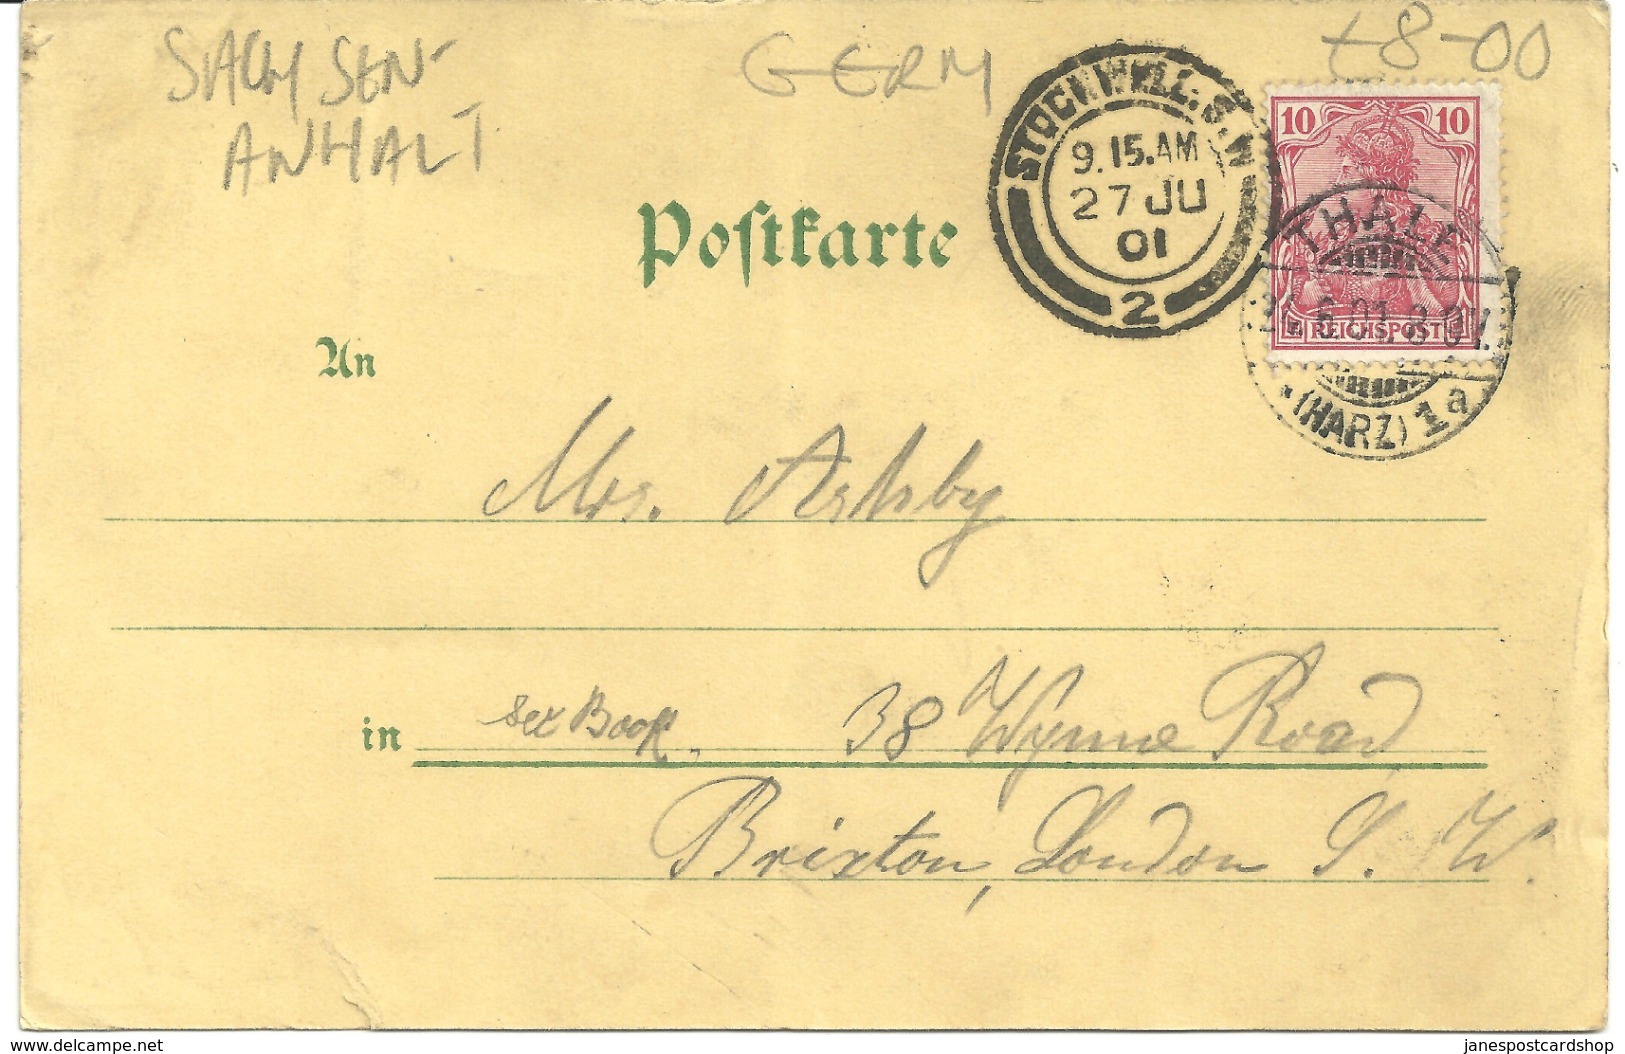 SACHSEN-
ANHALT
GERM
£8-00
STOCKWELL. S.W
9.15.AM
27 JU
01
2
10 10
REICHSPOST
THALE
(HARZ) 1a
Postkarte
An
Mrs. Ashby
in
38 Wynne Road
Brixton, London S. W.
delcampe.net
janespostcardshop